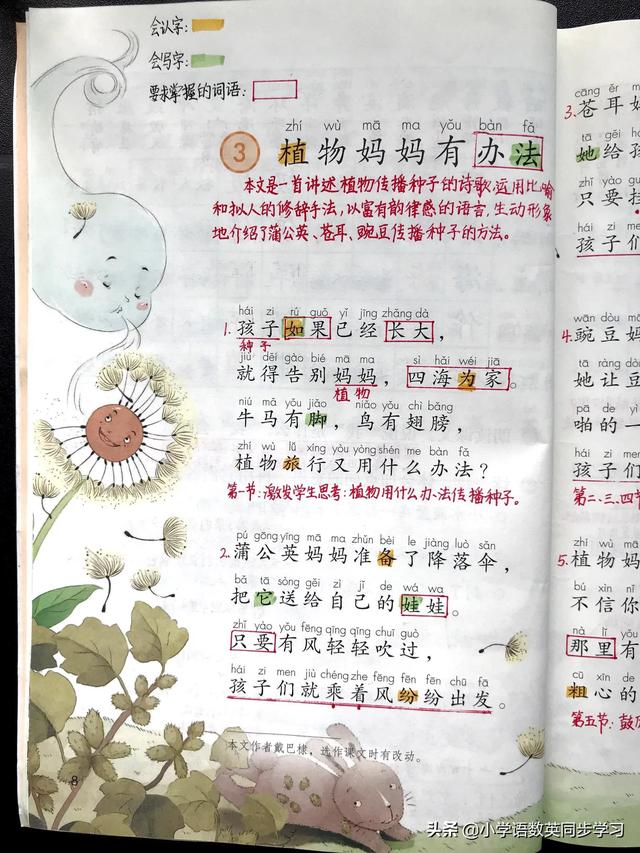 会认字：
会写字：
要求掌握的词语：
zhí wù mā ma yǒu bàn fǎ
3 植物妈妈有办法
本文是一首讲述植物传播种子的诗歌，运用比喻
和拟人的修辞手法，以富有韵律感的语言，生动形象
地介绍了蒲公英、苍耳、豌豆传播种子的方法。
hái zi rú guǒ yǐ jīng zhǎng dà
1. 孩子如果已经长大，
种子
jiù děi gào bié mā ma sì hǎi wéi jiā
就得告别妈妈，四海为家。
植物
niú mǎ yǒu jiǎo niǎo yǒu chì bǎng
牛马有脚，鸟有翅膀，
zhí wù lǚ xíng yòu yòng shén me bàn fǎ
植物旅行又用什么办法？
第一节：激发学生思考：植物用什么办法传播种子。
pú gōng yīng mā ma zhǔn bèi le jiàng luò sǎn
2. 蒲公英妈妈准备了降落伞，
bǎ tā sòng gěi zì jǐ de wá wa
把它送给自己的娃娃。
zhǐ yào yǒu fēng qīng qīng chuī guò
只要有风轻轻吹过，
hái zi men jiù chéng zhe fēng fēn fēn chū fā
孩子们就乘着风纷纷出发。
本文作者戴巴棣，选作课文时有改动。
8
cāng ěr mā
3. 苍耳妈
tā gěi hái
她给孩
zhǐ yào guà
只要挂
hái zi men
孩子们
wān dòu mā
4. 豌豆妈
tā ràng dòu
她让豆
pā de yì
啪的一
hái zi men
孩子们
第二、三、四节
zhí wù mā
5. 植物妈
bú xìn nǐ
不信你
nà lǐ yǒu
那里有
cū xīn de
粗心的
第五节：鼓
头条 @小学语数英同步学习